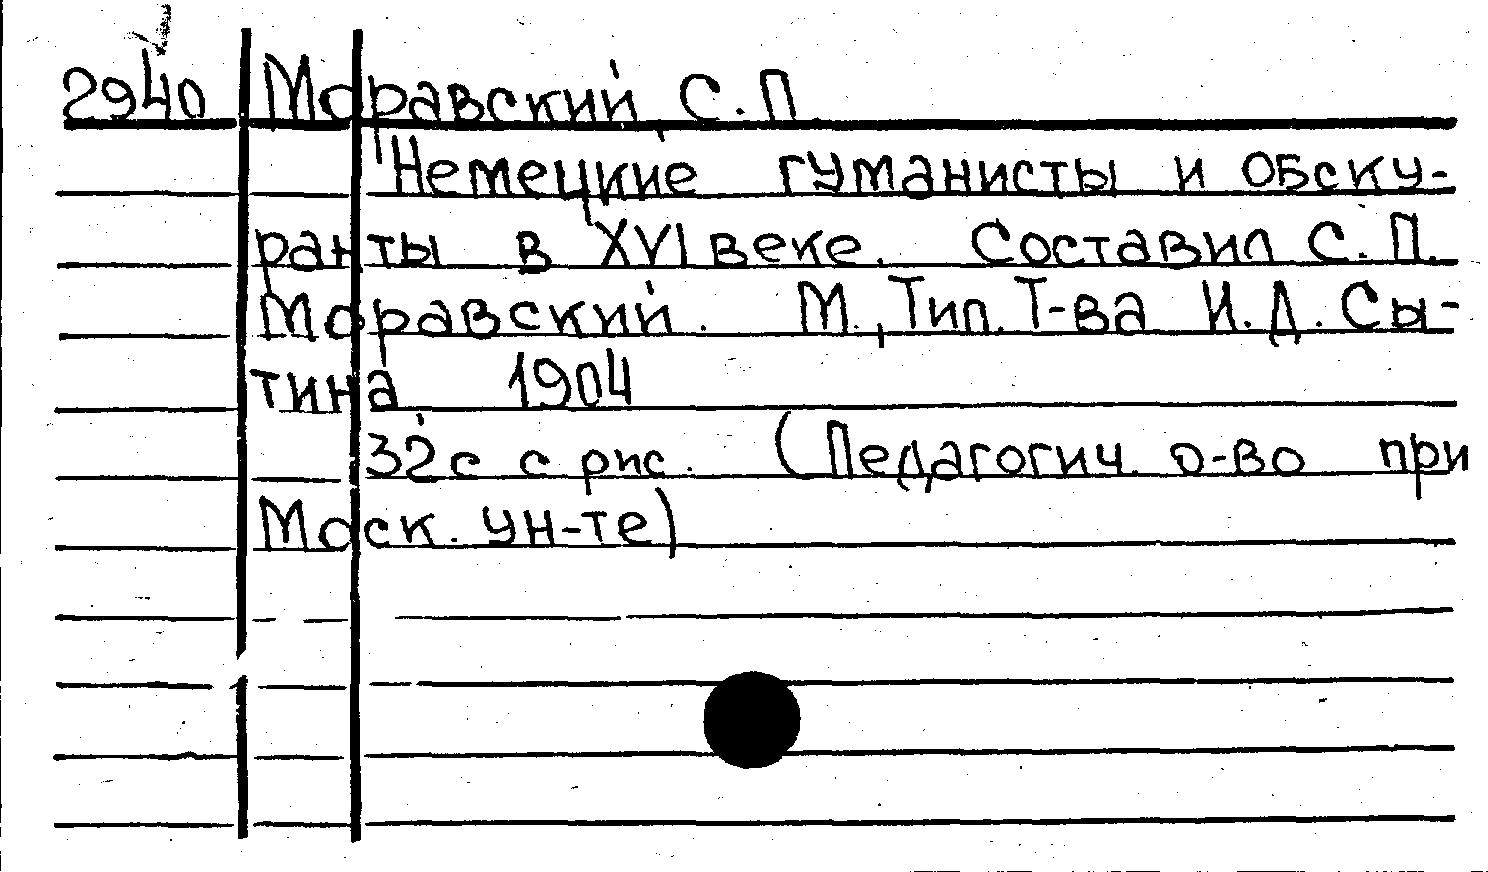 2940 Моравский, С.П.
Немецкие гуманисты и обску-
ранты в XVI веке. Составил С.П.
Моравский. М., Тип. Т-ва И.Д. Сы-
тина, 1904
32 с с рис. (Педагогич. о-во при
Моск. ун-те)